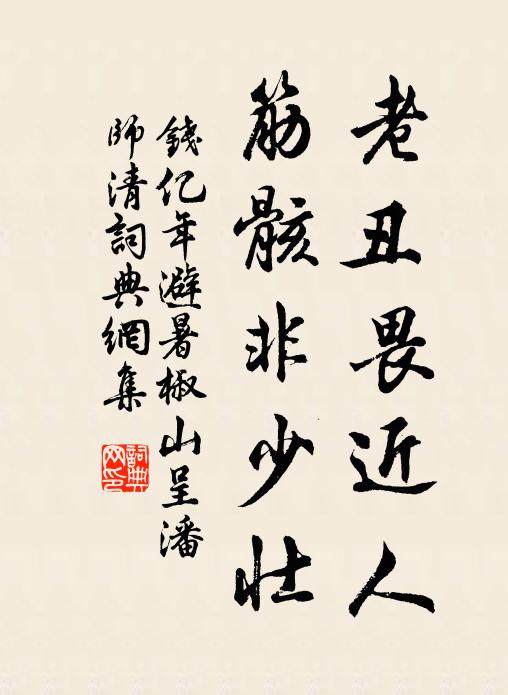 老丑畏近人
筋骸非少壮
錢亿年避暑椒山呈潘
師清詞典網集
詞典
网印